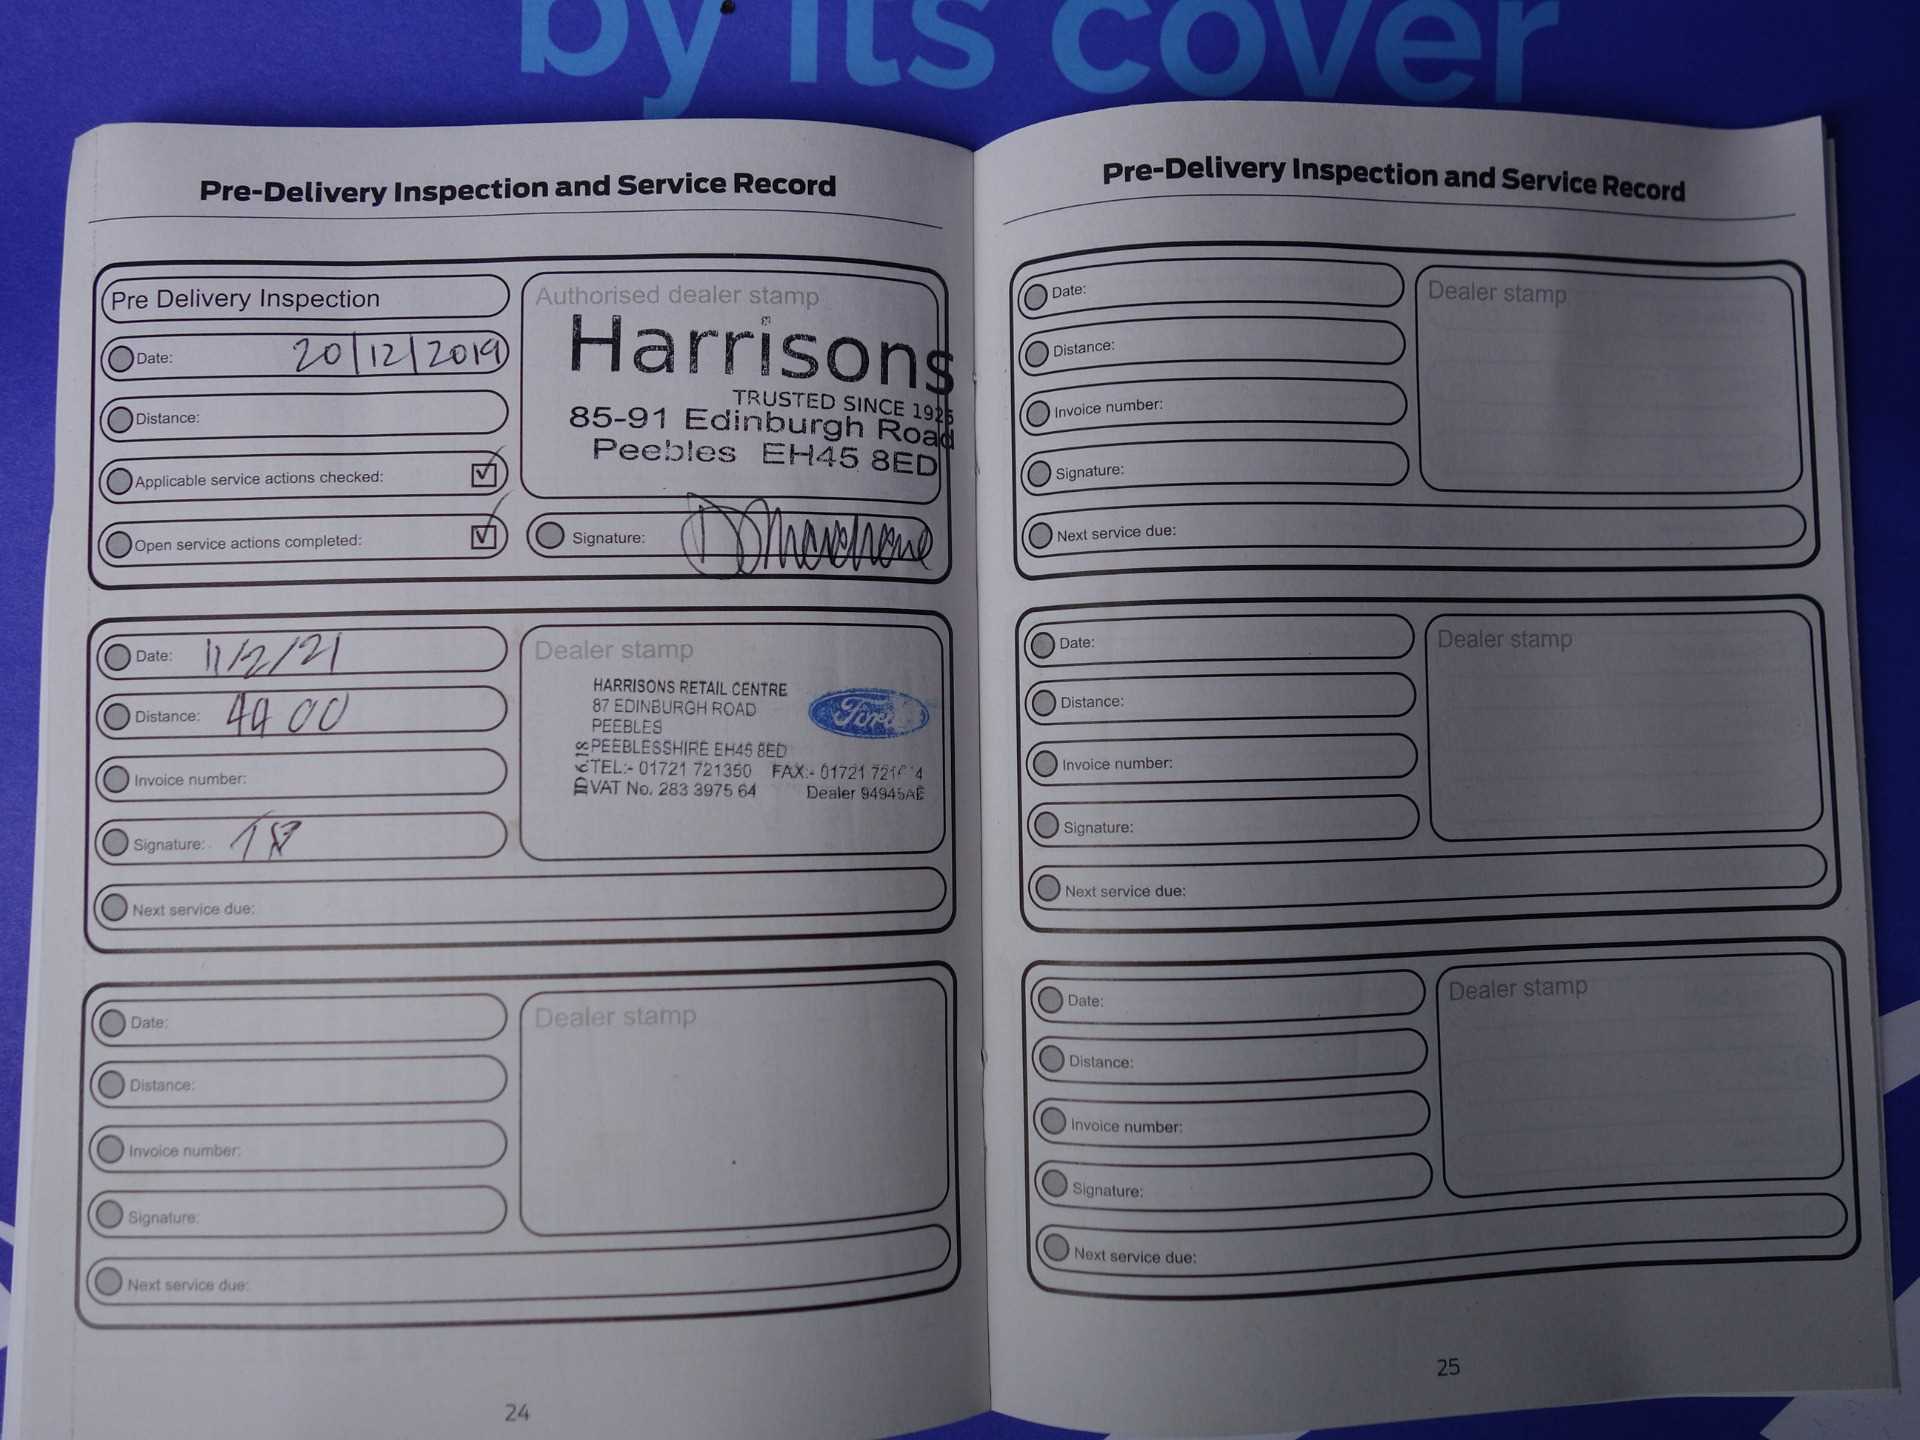 by its cover
Pre-Delivery Inspection and Service Record
Pre Delivery Inspection
Date: 20/12/2019
Distance:
Applicable service actions checked:
Open service actions completed:
Authorised dealer stamp
Harrisons
TRUSTED SINCE 1925
85-91 Edinburgh Road
Peebles EH45 8ED
Signature:
Date: 11/2/21
Distance: 4900
Invoice number:
Signature:
Next service due:
Dealer stamp
HARRISONS RETAIL CENTRE
87 EDINBURGH ROAD
PEEBLES
PEEBLESSHIRE EH45 8ED
TEL:- 01721 721350 FAX:- 01721
VAT No. 283 3975 64 Dealer 94945AE
Ford
Date:
Distance:
Invoice number:
Signature:
Next service due:
Dealer stamp
24
Pre-Delivery Inspection and Service Record
Date:
Distance:
Invoice number:
Signature:
Next service due:
Dealer stamp
Date:
Distance:
Invoice number:
Signature:
Next service due:
Dealer stamp
Date:
Distance:
Invoice number:
Signature:
Next service due:
Dealer stamp
25